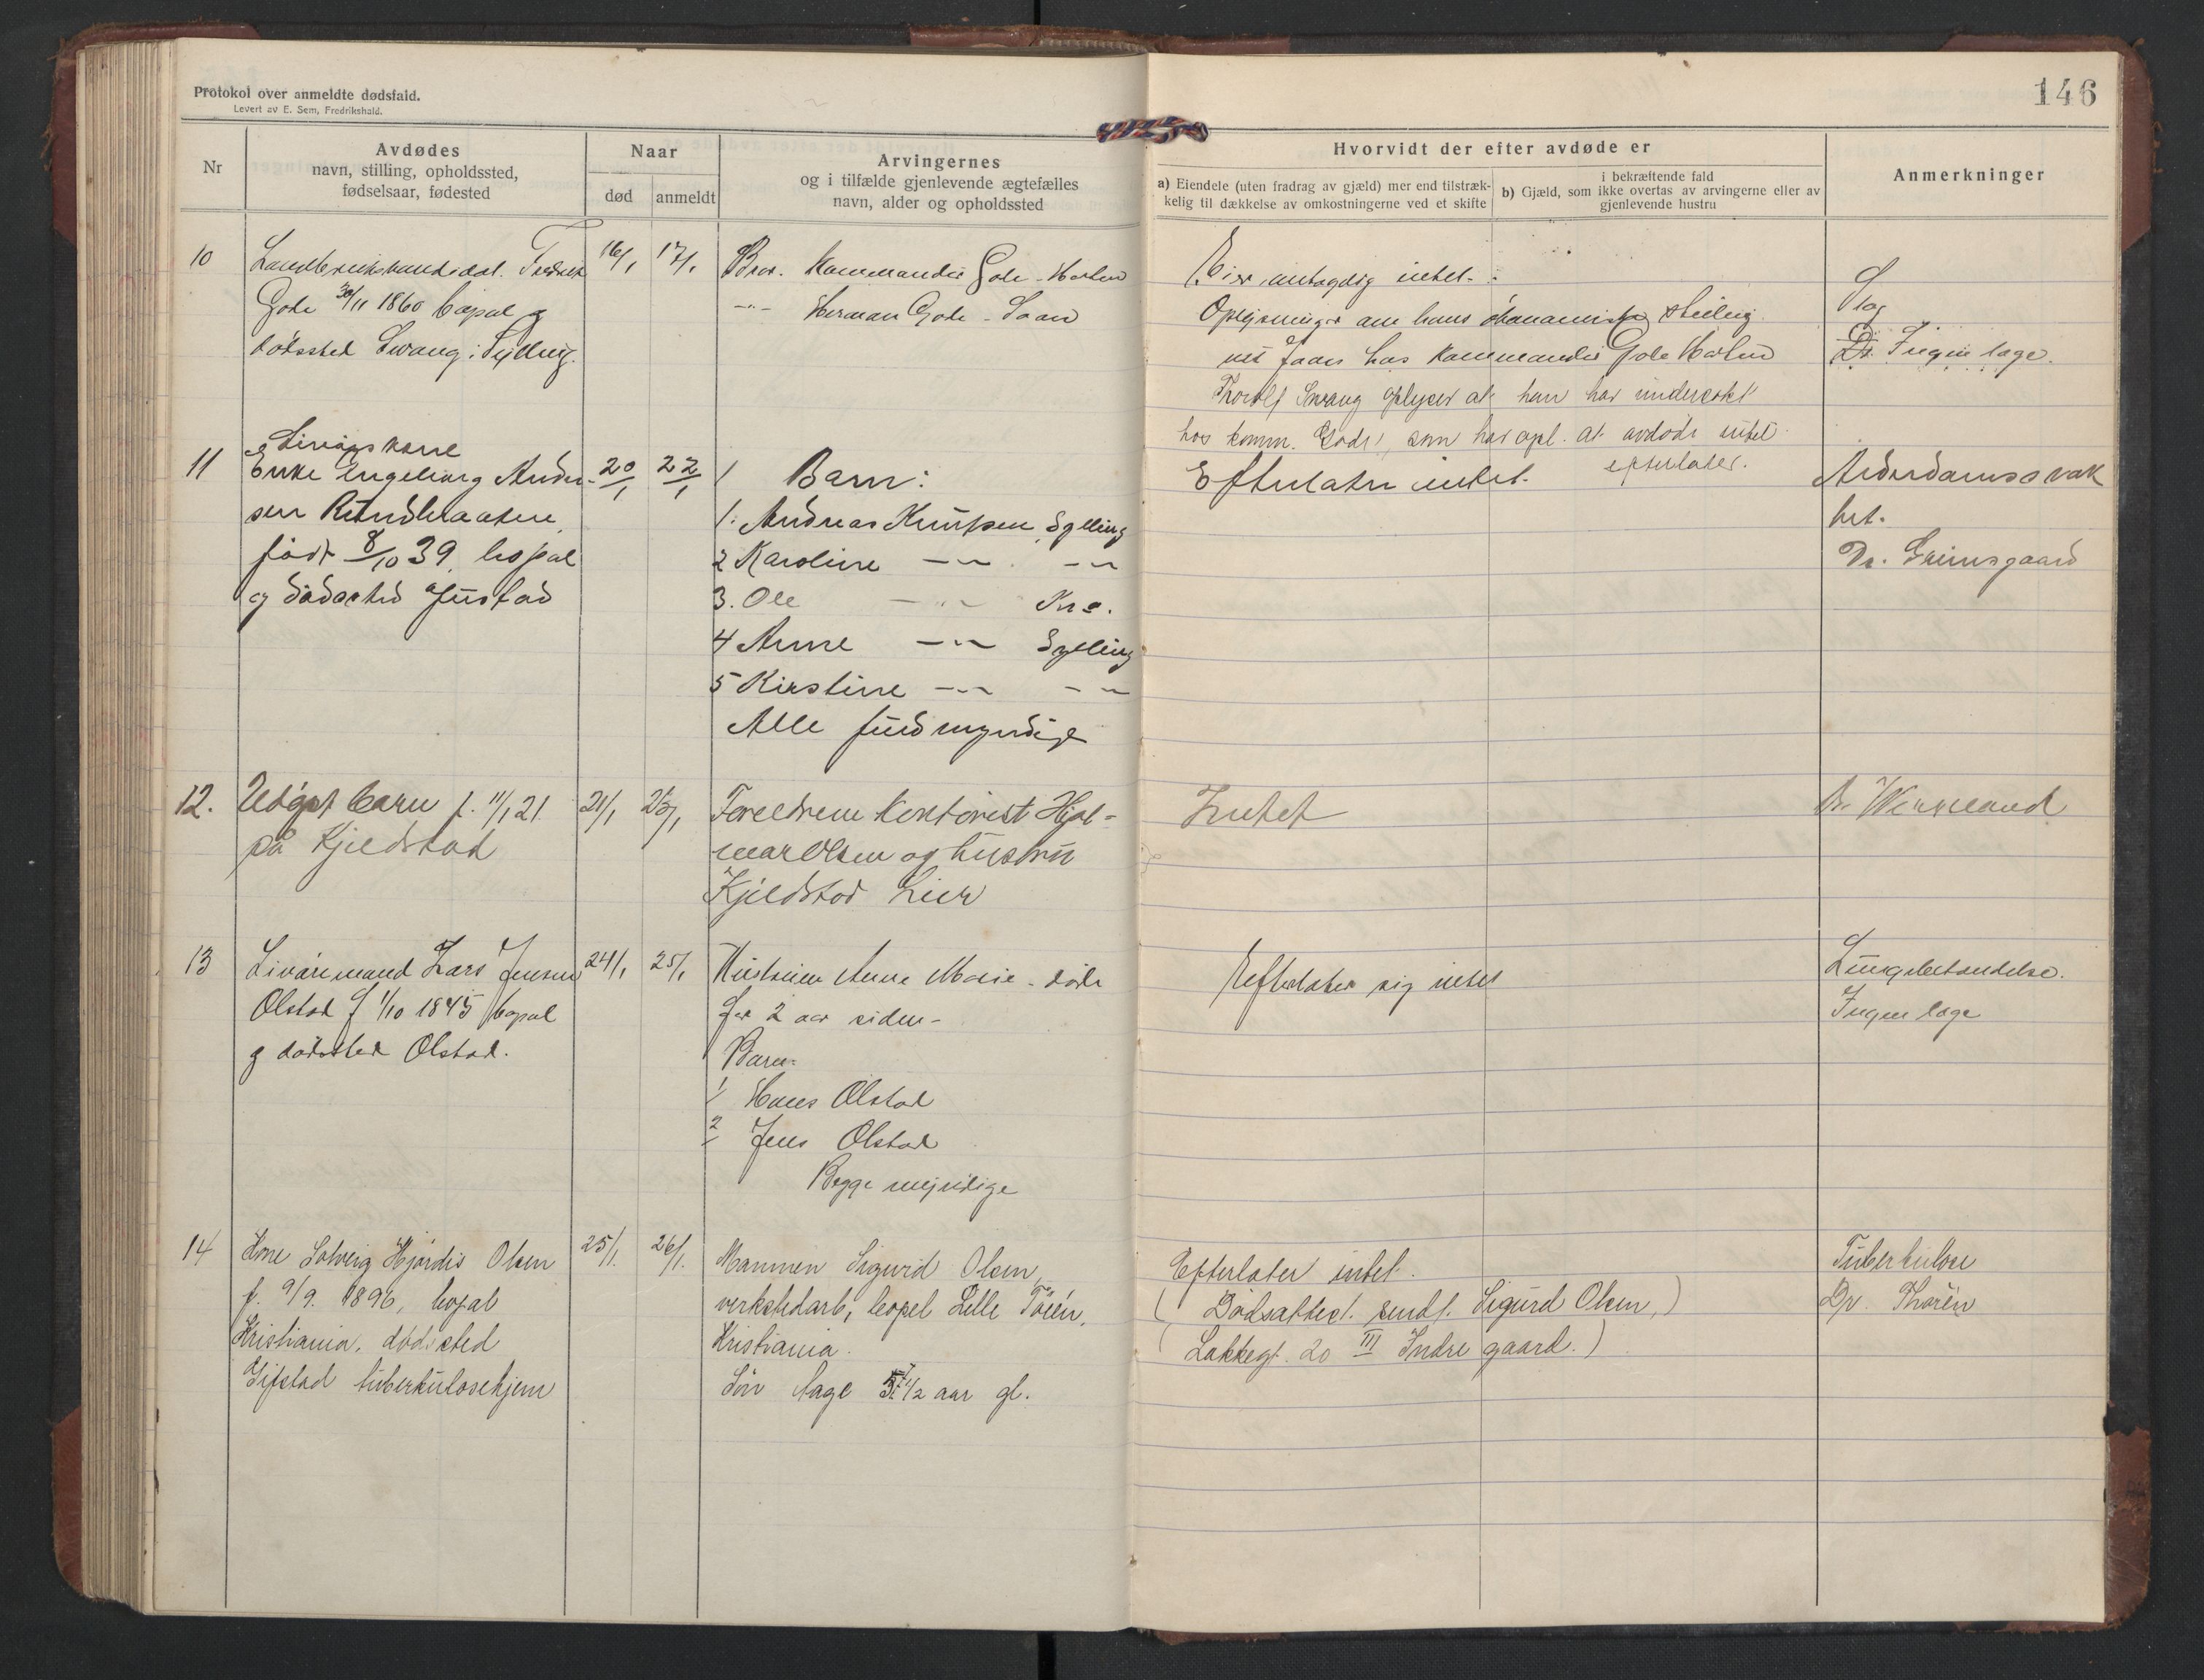 Protokol over anmeldte dødsfald.
Levert av E. Sem, Fredrikshald.
146
Nr
Avdødes
navn, stilling, opholdssted,
fødselsaar, fødested
Naar
død
anmeldt
Arvingernes
og i tilfælde gjenlevende ægtefælles
navn, alder og opholdssted
Hvorvidt der efter avdøde er
a) Eiendele (uten fradrag av gjæld) mer end tilstræk-
kelig til dækkelse av omkostningerne ved et skifte
i bekræftende fald
b) Gjæld, som ikke overtas av arvingerne eller av
gjenlevende hustru
Anmerkninger
10
Landbrukskandidat Fredrik
Gode 30/11 1860 bopal og
dødssted Svang i Sylling.
16/1
17/1
Bror. Kommandør Gode - Horten
-"- Herman Gode -
Eier antagelig intet.
Oplysninger om hans økonomiske stilling
faaes hos Kommandør Gode Horten
Thorolf Svang oplyser at han har undersøkt
hos komm. Gode, som har opl. at avdøde intet
efterlater.
Slag
Dr. Ingen læge.
11
Livørskone
Enke Engeborg Ander-
sen
født 8/10 39, bopal
og dødssted Justad
20/1
22/1
Barn:
1. Andreas Knutsen, Sylling
2 Karoline -"- -"-
3. Ole -"- Kra.
4 Anne -"- Sylling
5 Kirstine -"- -"-
Alle fuldmyndige
Efterlater intet.
Alderdomssvak
het.
Dr. Grimsgaard
12.
Udøpt barn f. 11/1 21
på Kjeldstad
21/1
23/1
Foreldrene Kontorist Hjal-
mar Olsen og hustru
Kjeldstad Lier
Intet
Dr. Wermeland
13
Livøremand Lars Jensen
Olstad f 1/10 1845 bopal
og dødssted Olstad.
24/1
25/1
Hustruen Anne Marie - døde
for 2 aar siden -
Barn:
1 Hans Olstad
2 Jens Olstad
Begge myndige
Efterlater sig intet
Lungebetændelse.
Ingen læge
14
Kone Solveig Hjørdis Olsen
f. 9/9. 1896, bopal
Kristiania, dødssted
Gifstad tuberkulosehjem
25/1.
26/1.
Mannen Sigurd Olsen,
verkstedarb, bopel Lille Tøien,
Kristiania.
Søn Aage 1/2 aar gl.
Efterlater intet.
( Dødsattest. sendt. Sigurd Olsen, )
( Lakkegt. 20 III Indre gaard. )
Tuberkulose
Dr. Thorèn